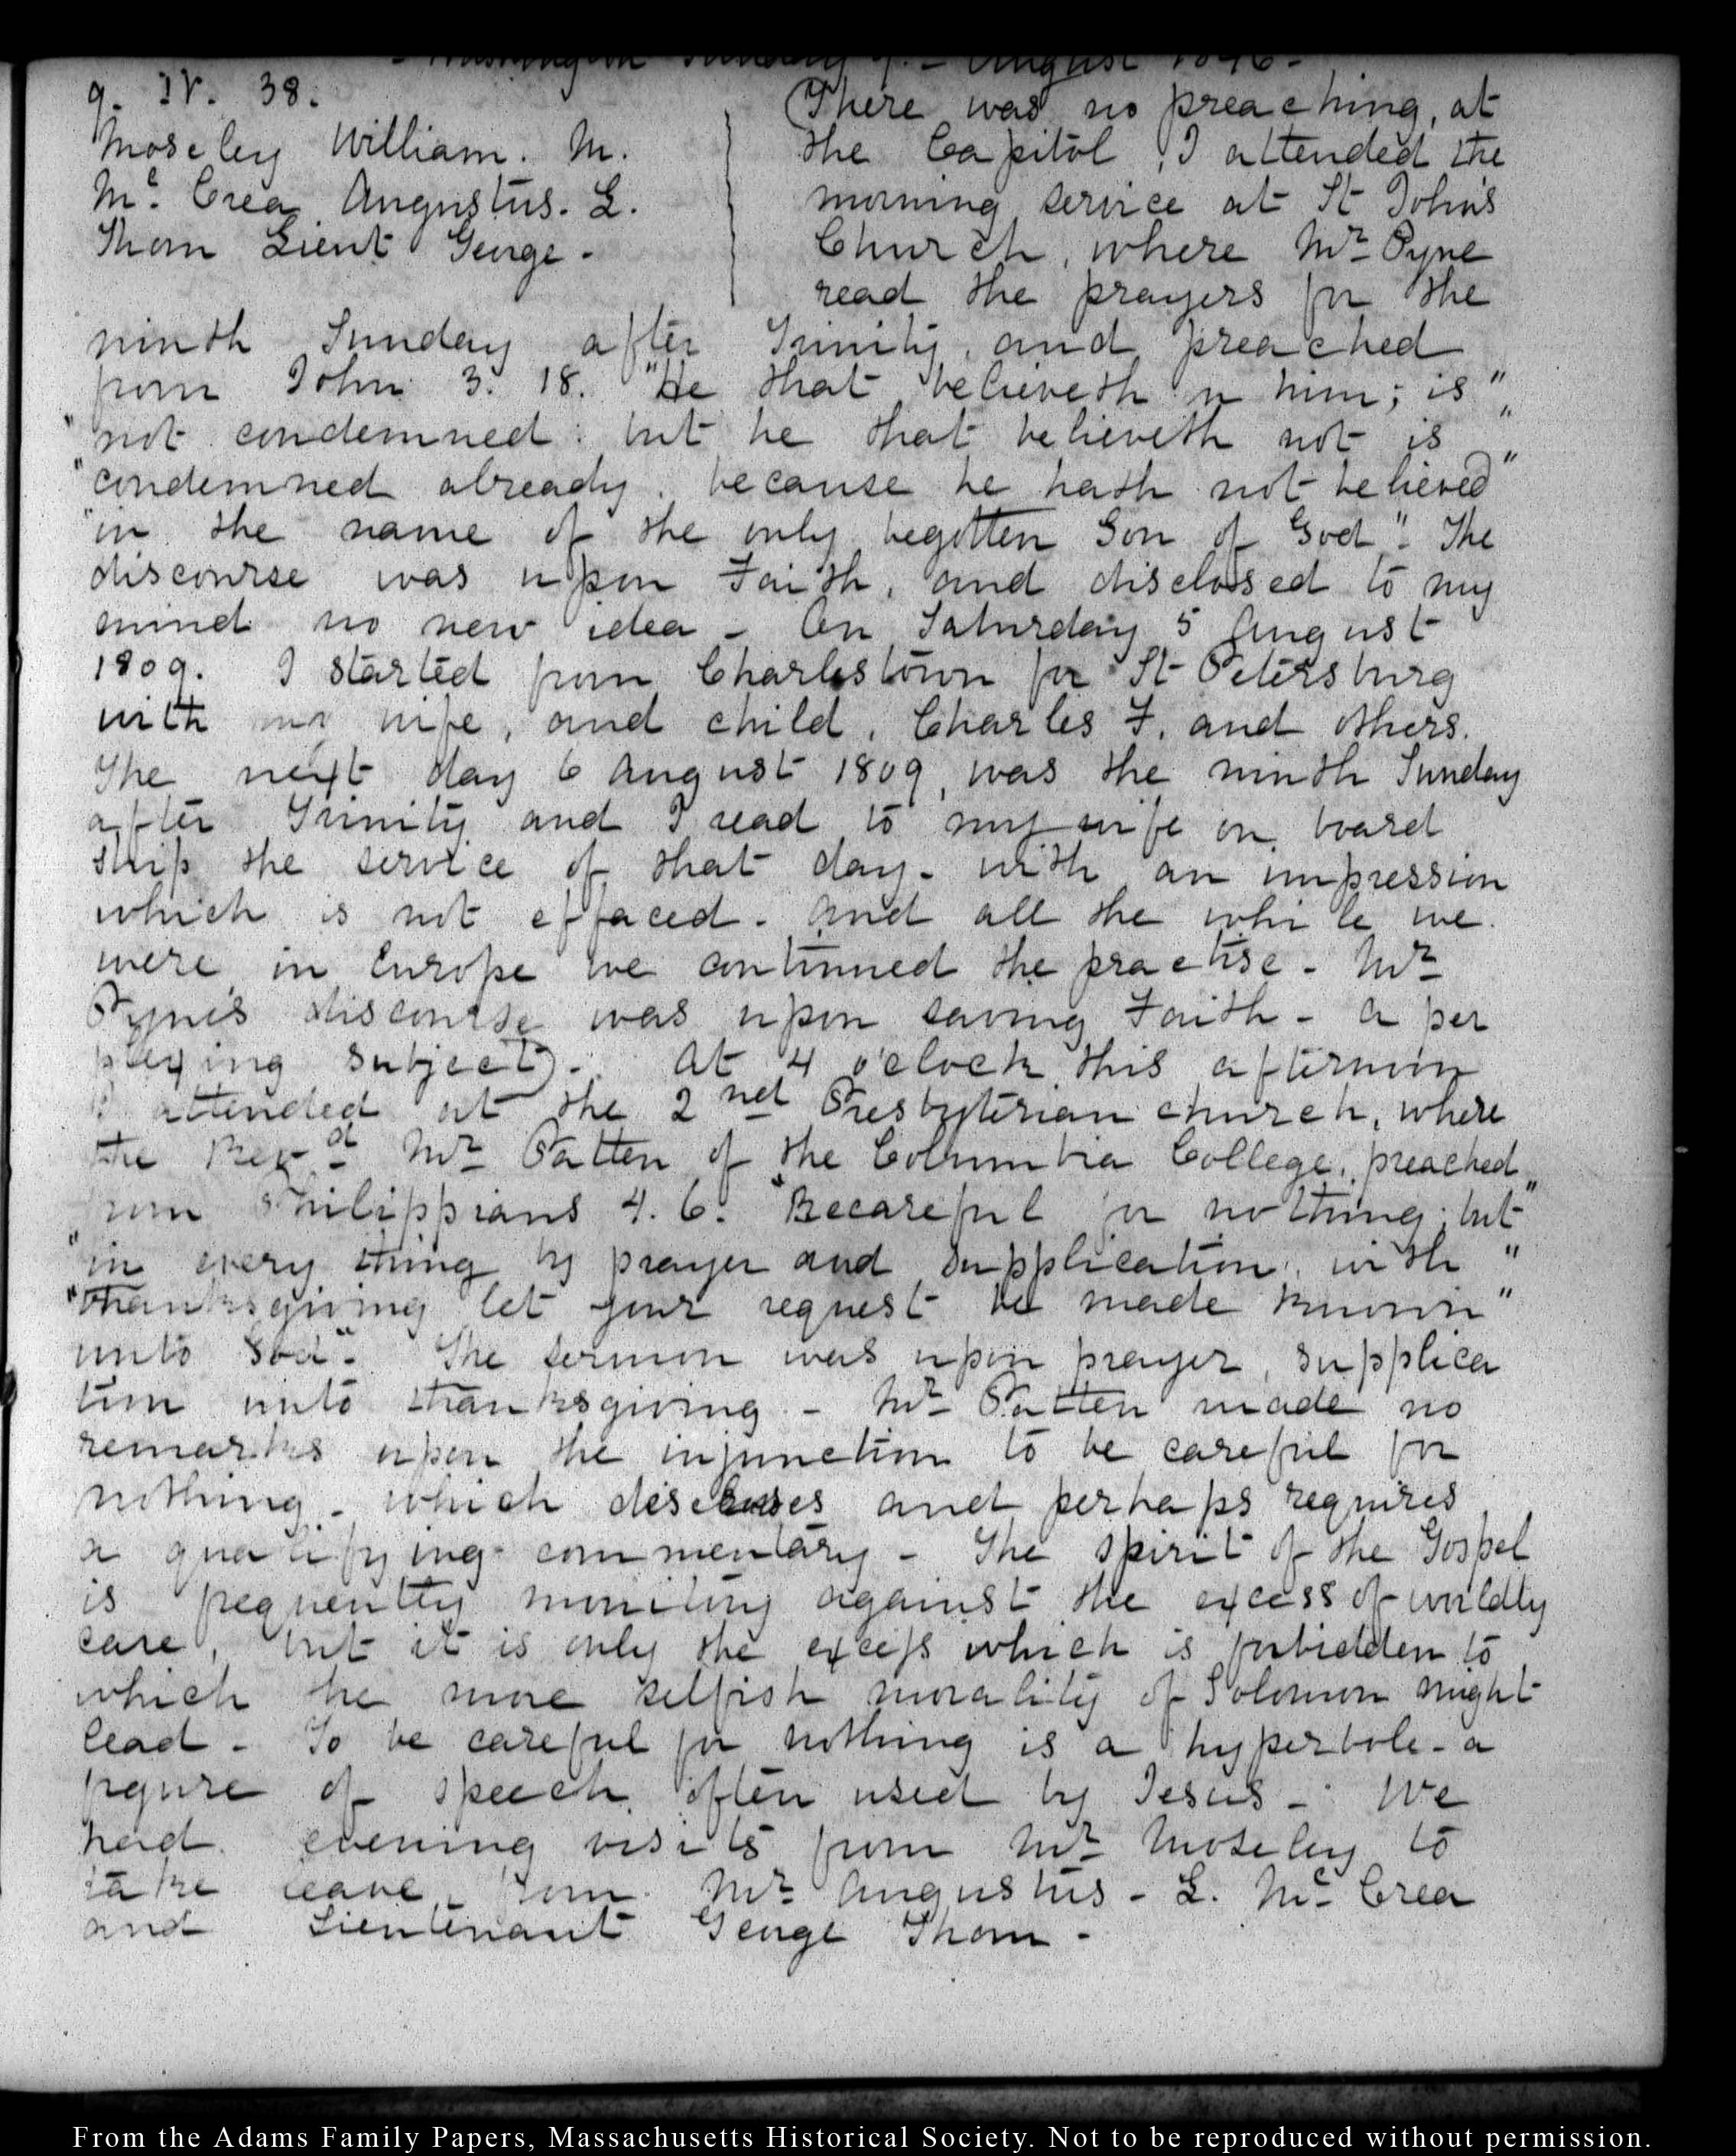 Washington Sunday 9. - August 1846 -
9. IV. 38.
Moseley William. M.
Mc. Crea Augustus. L.
Thom Lieut George -
(There was no preaching, at
the Capitol, I attended the
morning service at St John's
Church, where Mr Pyne
read the prayers for the
ninth Sunday after Trinity, and preached
from John 3. 18. "He that believeth in him; is"
"not condemned: but he that believeth not is"
"condemned already, because he hath not believed"
"in the name of the only begotten Son of God". The
discourse was upon Faith, and disclosed to my
mind no new idea - On Saturday 5 August
1809. I started from Charlestown for St Petersburg
with my wife, and child, Charles F. and others.
The next day 6 August 1809, was the ninth Sunday
after Trinity and I read to my wife on board
ship the service of that day - with an impression
which is not effaced - and all the while we
were in Europe we continued the practise - Mr
Pyne's discourse was upon saving Faith - a per
plexing subject) - At 4 o'clock this afternoon
I attended at the 2nd Presbyterian church, where
the Revd Mr Patten of the Columbia College, preached
from Philippians 4. 6. "Be careful for nothing; but"
"in every thing by prayer and supplication, with"
"thanksgiving let your request be made known"
unto God". The sermon was upon prayer, supplica
tion unto thanksgiving - Mr Patten made no
remarks upon the injunction to be careful for
nothing - which discloses and perhaps requires
a qualifying commentary - The spirit of the Gospel
is frequently monitory against the excess of worldly
care, but it is only the excess which is forbidden to
which the more selfish morality of Solomon might
lead - To be careful for nothing is a hyperbole - a
figure of speech often used by Jesus - We
had evening visits from Mr Moseley to
take leave, from Mr Augustus - L. Mc Crea
and Lieutenant George Thom -
From the Adams Family Papers, Massachusetts Historical Society. Not to be reproduced without permission.